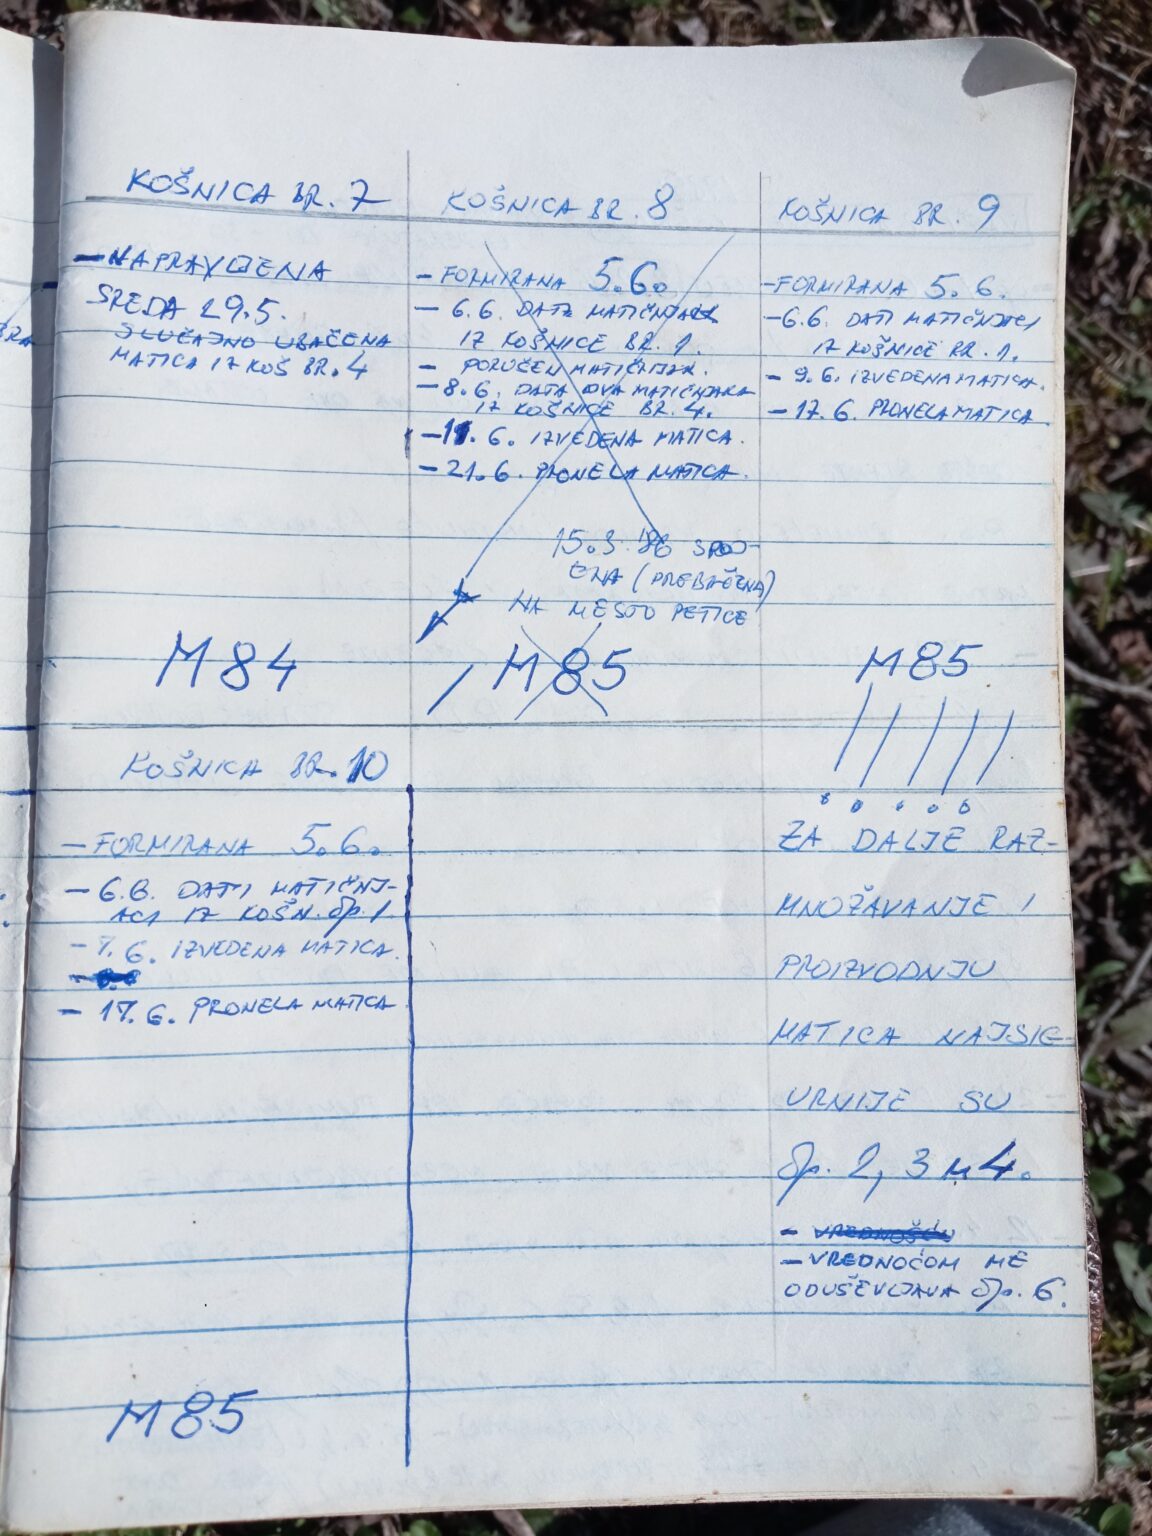 KOŠNICA BR. 7
- NAPRAVLJENA
SREDA 29.5.
SLUČAJNO UBAČENA
MATICA IZ KOŠ BR. 4
M84
KOŠNICA BR. 8
- FORMIRANA 5.6.
- 6.6. DATI MATIČNJACI
IZ KOŠNICE BR. 1.
- PORUČEN MATIČNJAK.
- 8.6. DATA DVA MATIČNJAKA
IZ KOŠNICE BR. 4.
- 11. 6. IZVEDENA MATICA.
- 21.6. PRONELA MATICA.
15.3.86 SPOJ-
ENA (PREBAČENA)
NA MESTO PETICE
M85
KOŠNICA BR. 9
- FORMIRANA 5.6.
- 6.6. DATI MATIČNJACI
IZ KOŠNICE BR. 1.
- 9.6. IZVEDENA MATICA.
- 17.6. PRONELA MATICA.
M85
KOŠNICA BR. 10
- FORMIRANA 5.6.
- 6.6. DATI MATIČNJ-
ACI IZ KOŠN. бр. 1
- 9.6. IZVEDENA MATICA.
- 17.6. PRONELA MATICA
M85
ZA DALJE RAZ-
MNOŽAVANJE I
PROIZVODNJU
MATICA NAJSIG-
URNIJE SU
бр. 2, 3 и 4.
- VREDNOŠĆU
- VREDNOĆOM ME
ODUŠEVLJAVA бр. 6.